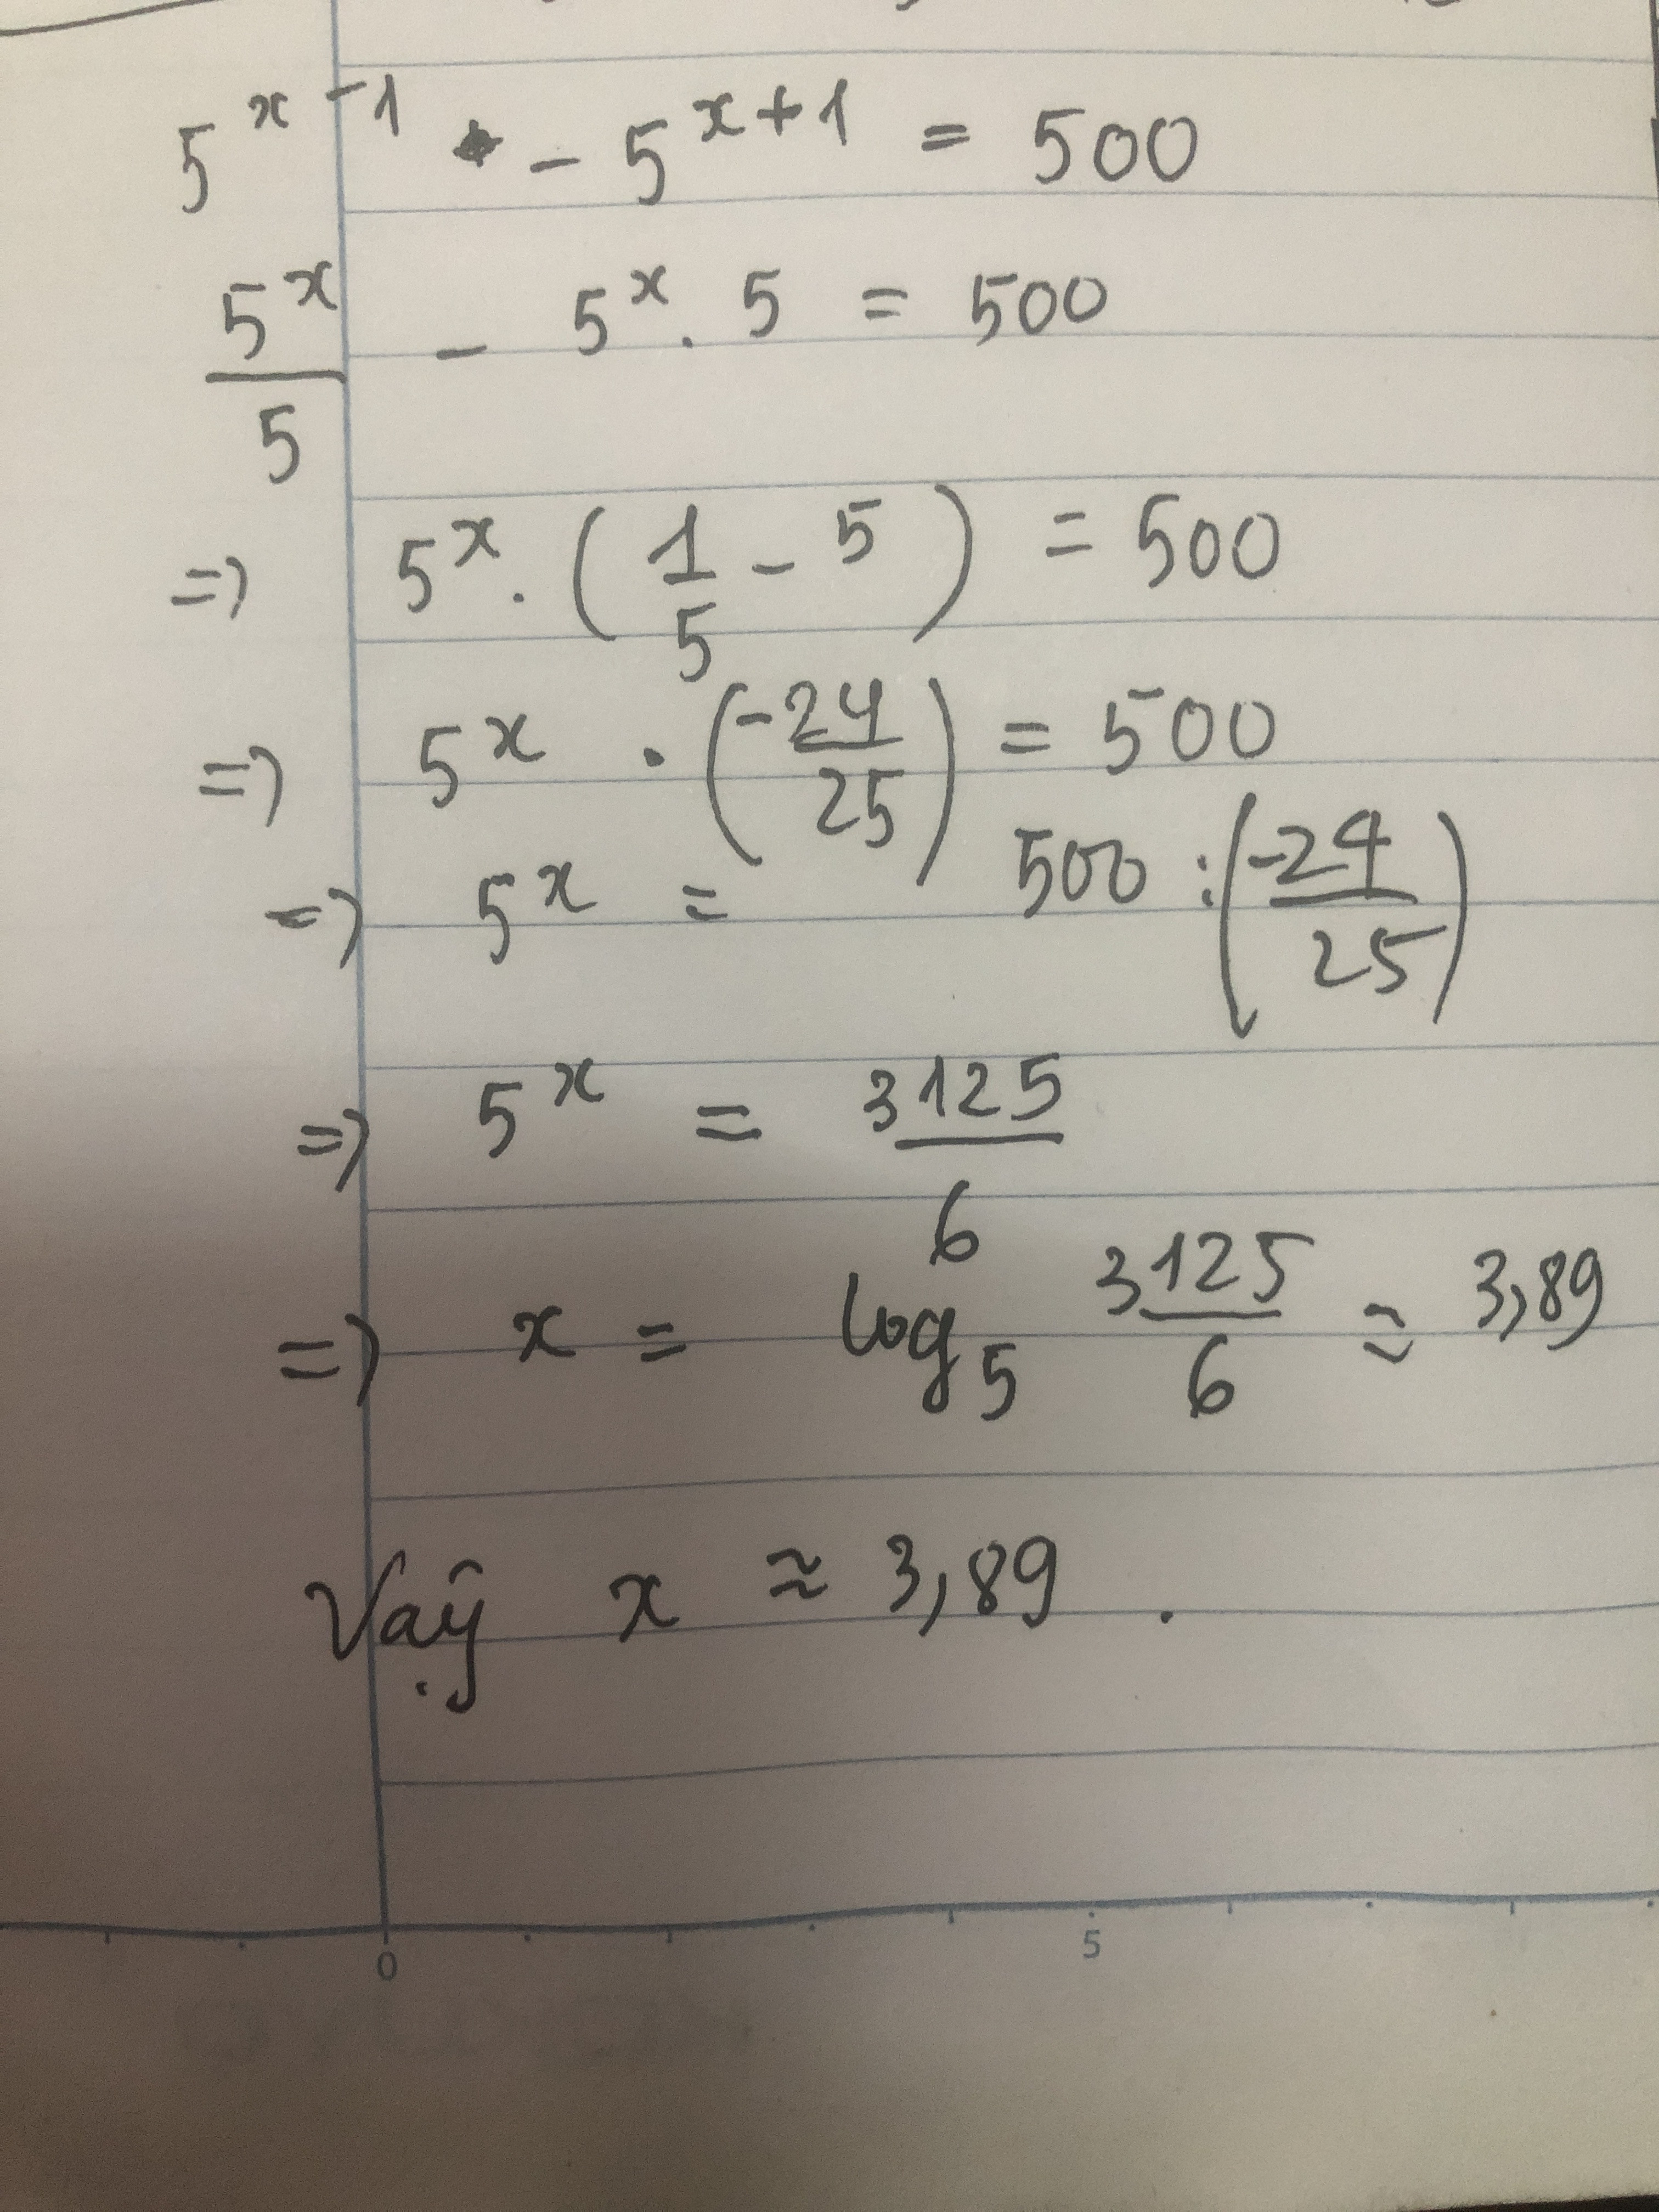 5^{x-1} - 5^{x+1} = 500
\frac{5^x}{5} - 5^x . 5 = 500
=> 5^x . (\frac{1}{5} - 5) = 500
=> 5^x . (\frac{-24}{25}) = 500
=> 5^x = 500 : (\frac{-24}{25})
=> 5^x = \frac{3125}{6}
=> x = log_5 \frac{3125}{6} ≈ 3,89
Vậy x ≈ 3,89 .
0 5